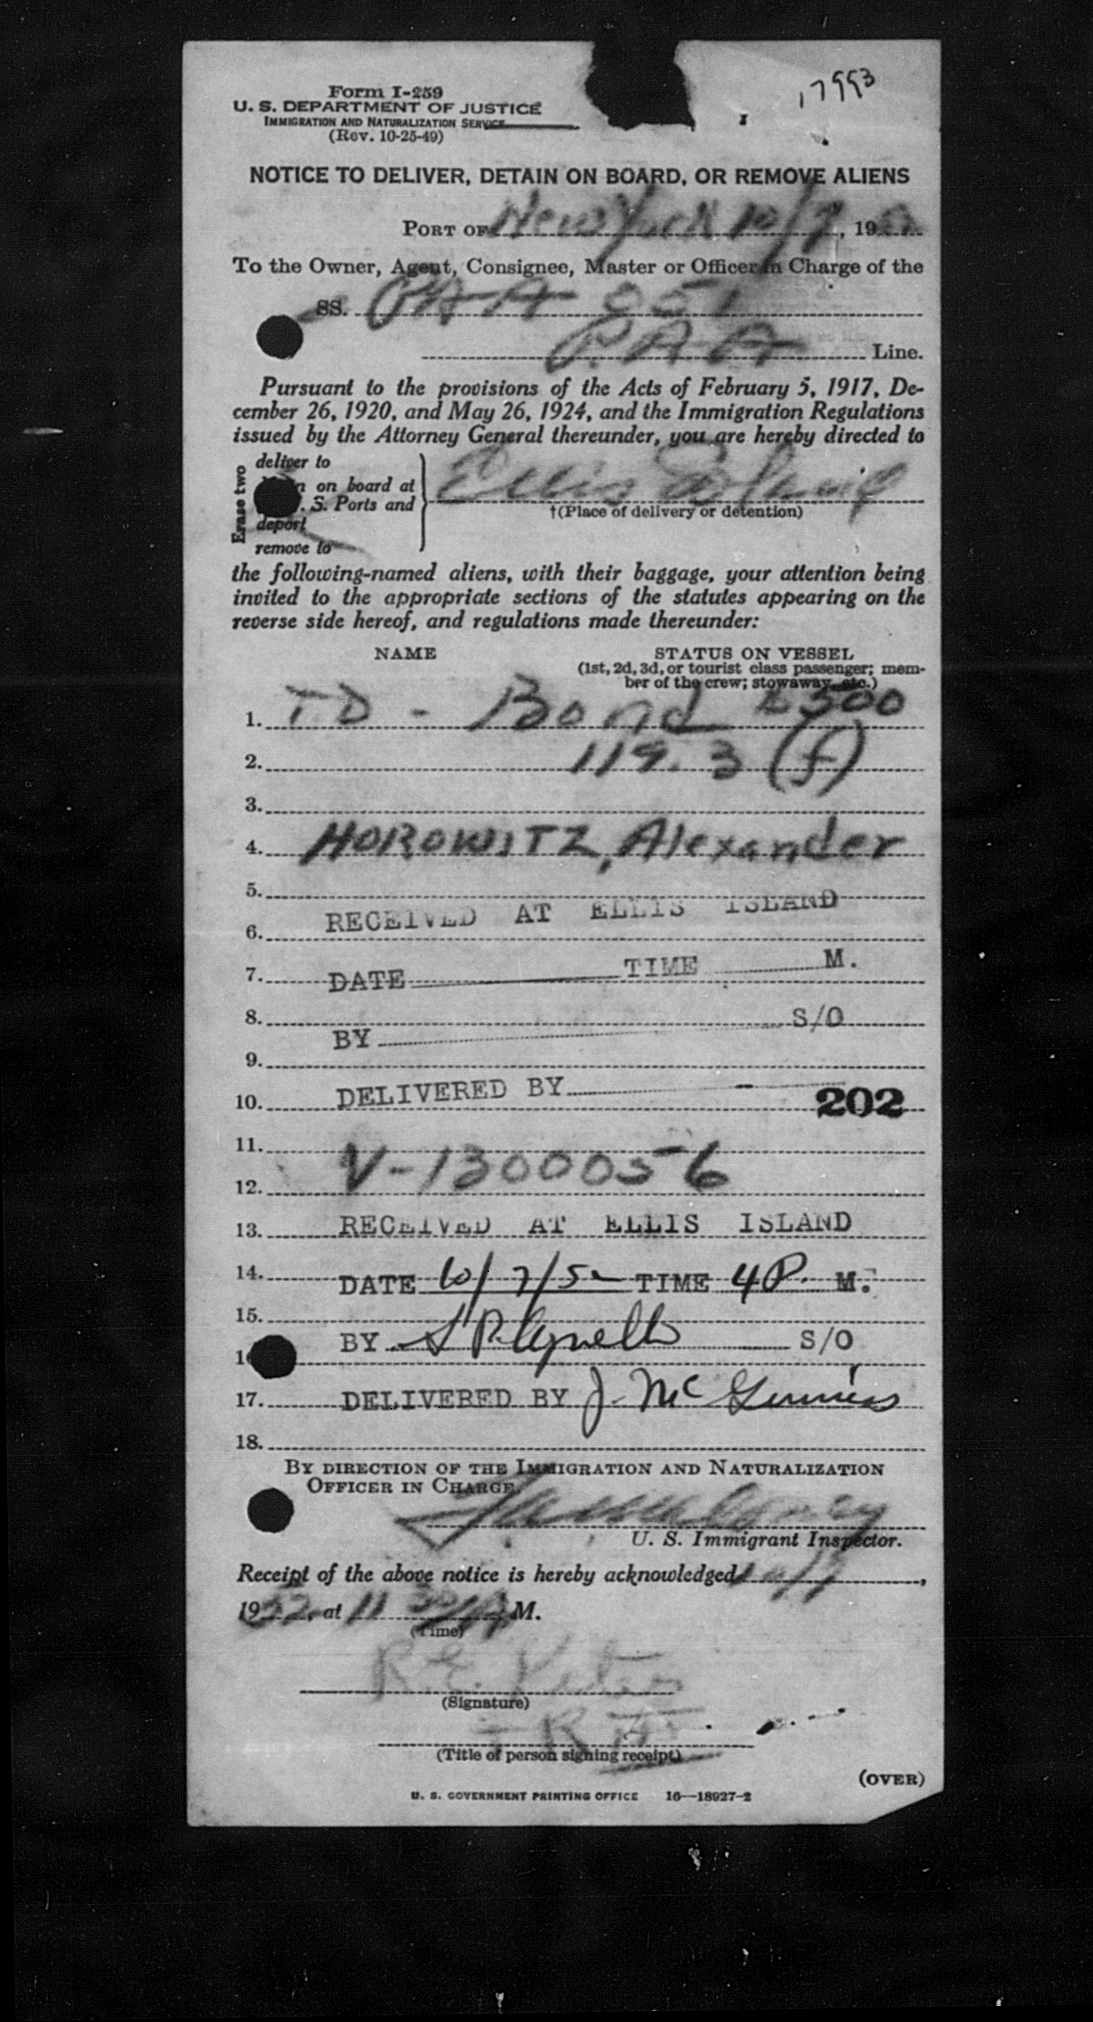 17993
Form I-259
U. S. DEPARTMENT OF JUSTICE
IMMIGRATION AND NATURALIZATION SERVICE
(Rev. 10-25-49)
NOTICE TO DELIVER, DETAIN ON BOARD, OR REMOVE ALIENS
PORT OF New York 10/7, 19
To the Owner, Agent, Consignee, Master or Officer in Charge of the
SS. PAA 051
P.A.A Line.
Pursuant to the provisions of the Acts of February 5, 1917, De-
cember 26, 1920, and May 26, 1924, and the Immigration Regulations
issued by the Attorney General thereunder, you are hereby directed to
Erase two
deliver to
on board at
S. Ports and
deport
remove to
Ellis Island
†(Place of delivery or detention)
the following-named aliens, with their baggage, your attention being
invited to the appropriate sections of the statutes appearing on the
reverse side hereof, and regulations made thereunder:
NAME STATUS ON VESSEL
(1st, 2d, 3d, or tourist class passenger; mem-
ber of the crew; stowaway, etc.)
1. TD - Bond $500
2. 119.3 (f)
3.
4. HOROWITZ, Alexander
5.
6. RECEIVED AT ELLIS ISLAND
7. DATE TIME M.
8. S/O
BY
9.
10. DELIVERED BY 202
11.
12. V-1300056
13. RECEIVED AT ELLIS ISLAND
14. DATE 10/7/52 TIME 4 P. M.
15.
BY S/O
17. DELIVERED BY J. McGinniss
18.
BY DIRECTION OF THE IMMIGRATION AND NATURALIZATION
OFFICER IN CHARGE,
U. S. Immigrant Inspector.
Receipt of the above notice is hereby acknowledged 10/7,
1952, at 11 30 A M.
(Time)
R.E.
(Signature)
(Title of person signing receipt)
(OVER)
U. S. GOVERNMENT PRINTING OFFICE 16—18927-2